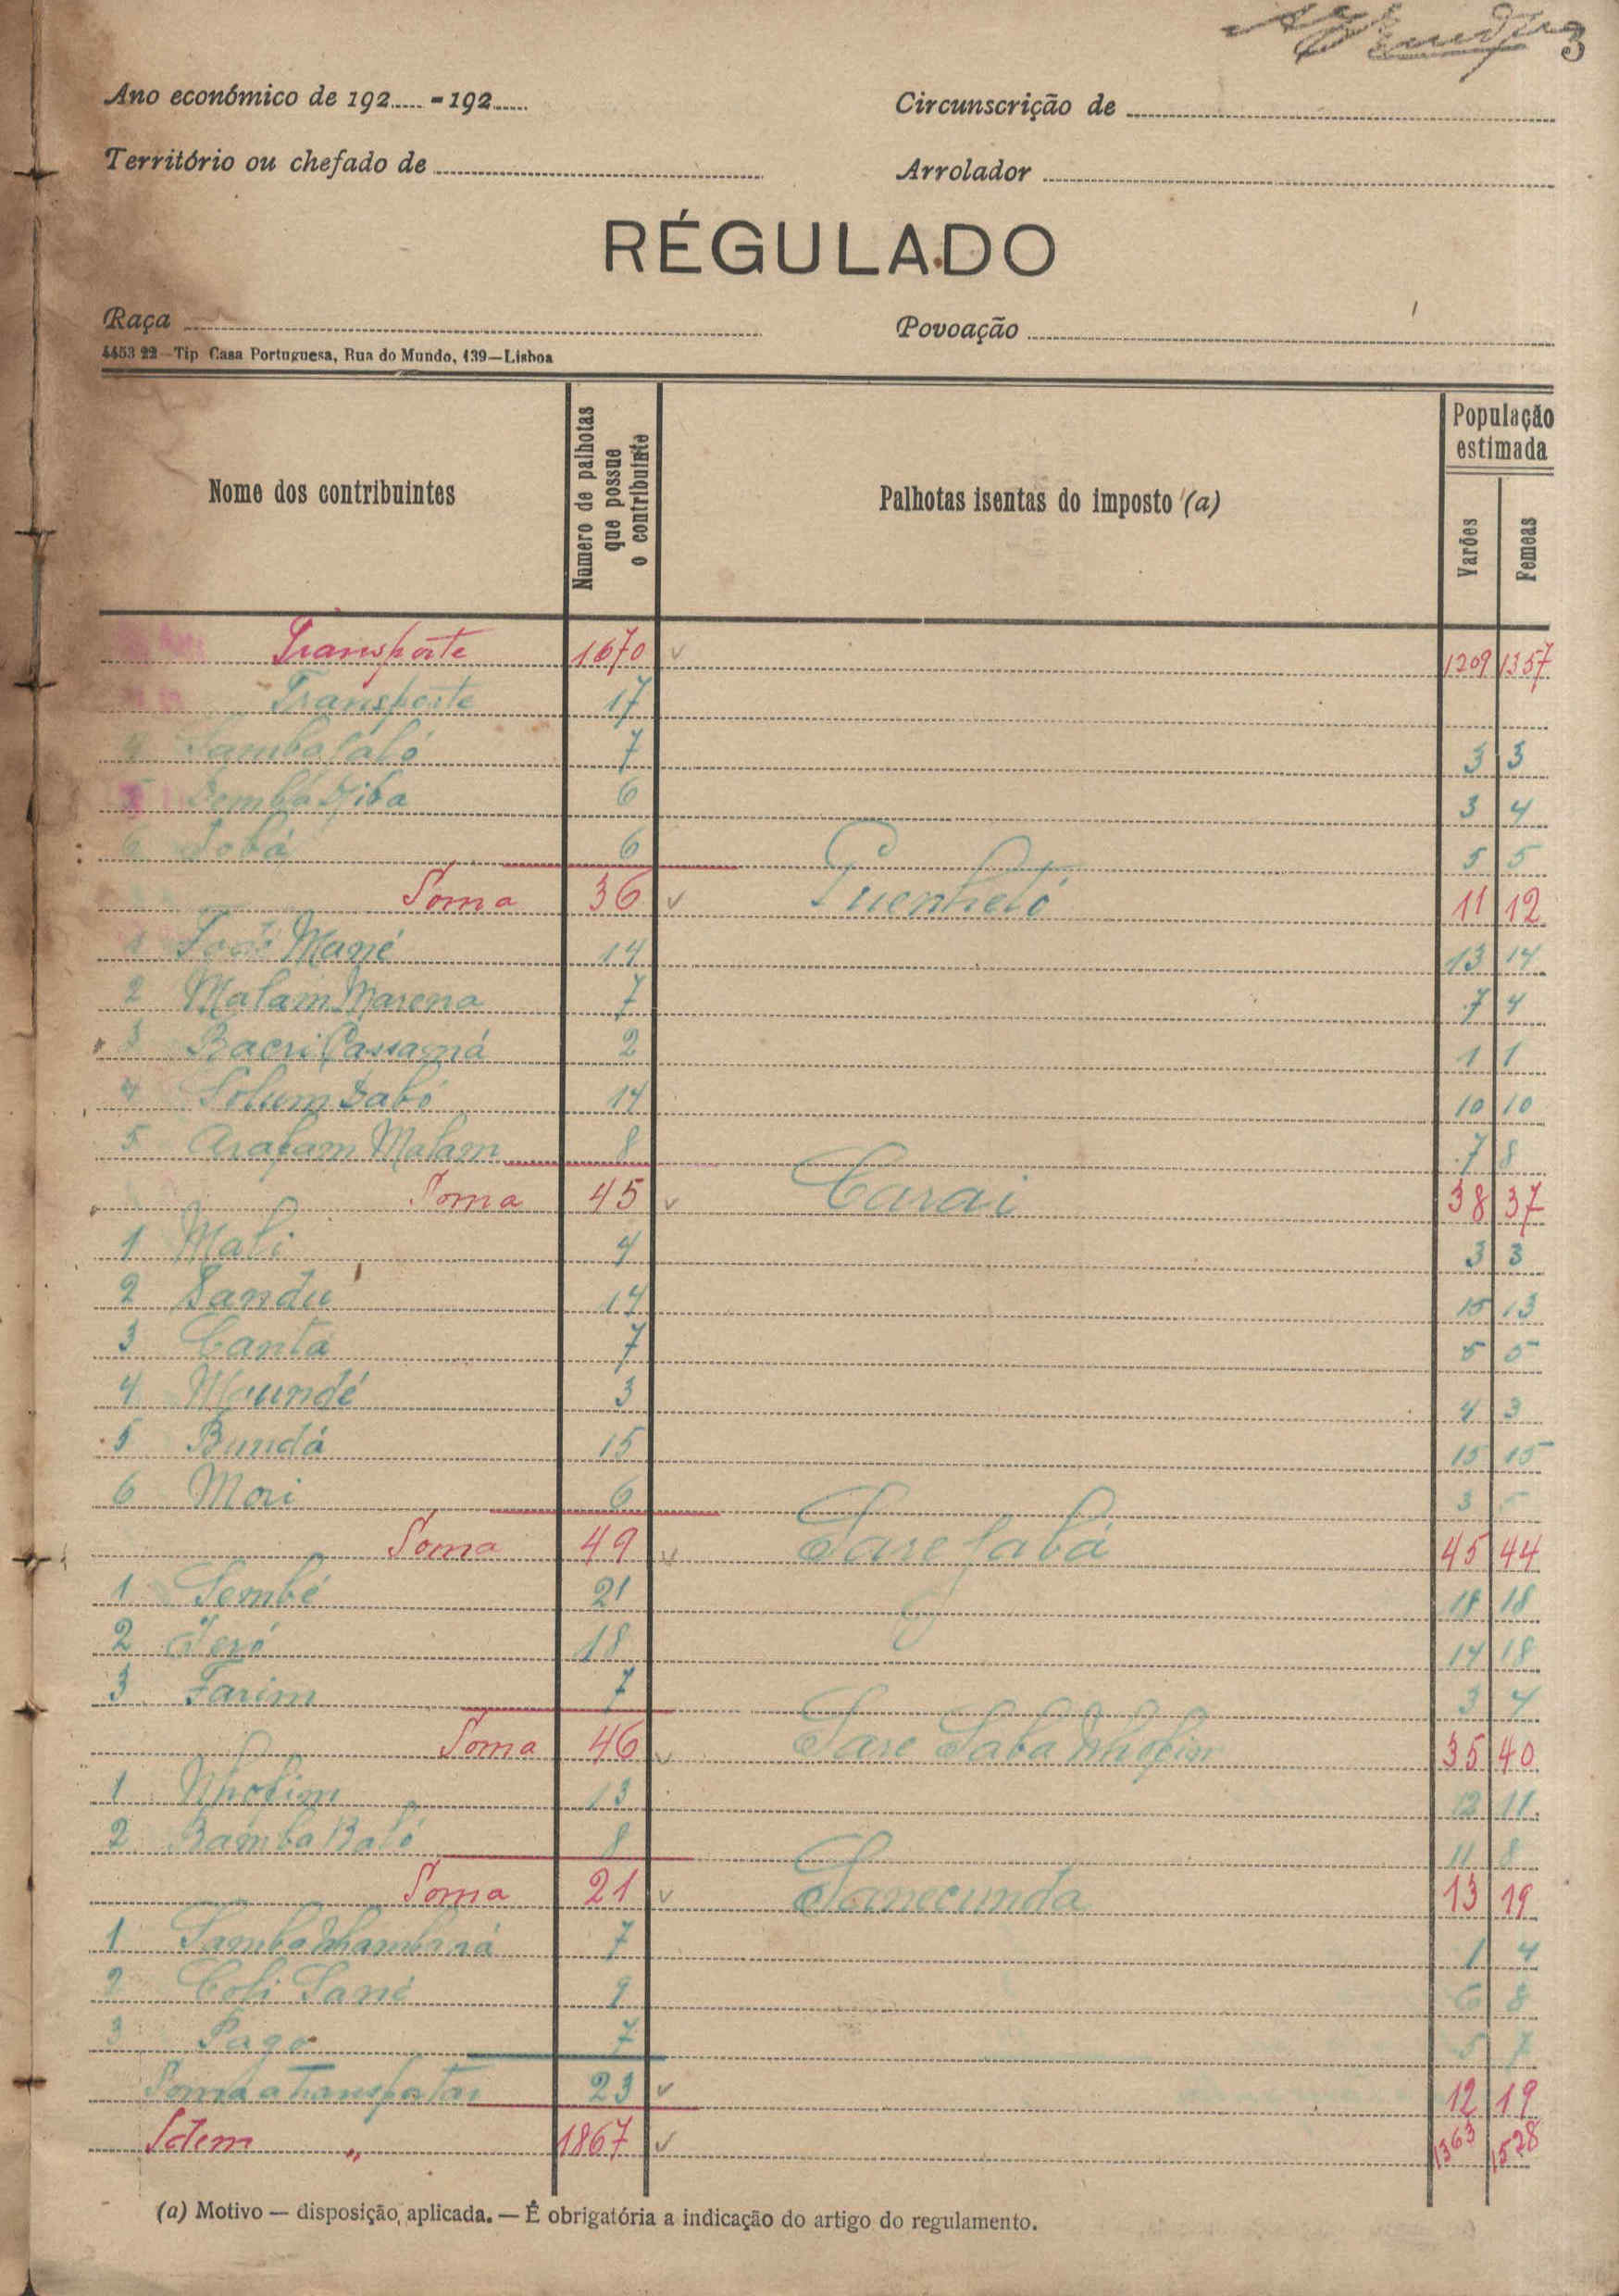 3
Ano económico de 192..... - 192.....
Circunscrição de
Território ou chefado de
Arrolador
RÉGULADO
Raça
Povoação
4453 22—Tip Casa Portuguesa, Rua do Mundo, 139—Lisboa
Nome dos contribuintes
Número de palhotas que possue o contribuinte
Palhotas isentas do imposto (a)
População estimada
Varões
Femeas
Transporte 1670 1209 1357
Transporte 17
4 Samba 7 3 3
5 Demba Djiba 6 3 4
6 Jobá 6 5 5
Soma 36 11 12
1 José Mané 14 13 14
2 Malam Marena 7 7 4
3 Bacri Cassamá 2 1 1
4 14 10 10
5 Arafam Malam 8 7 8
Soma 45 Carai 38 37
1 Mali 4 3 3
2 Sandu 14 15 13
3 Canta 7 5 5
4 Maundé 3 4 3
5 Bundá 15 15 15
6 Mori 6 3
Soma 49 Sare 45 44
1 Sembé 21 18 18
2 18 14 18
3 Farim 7 3 4
Soma 46 Sare Saba 35 40
1 13 11
2 Bamba Baló 8 11 8
Soma 21 Sanecunda 13 19
1 Samba 7 1 4
2 Coli Sané 9 6 8
3 Sago 7 5 7
Soma a transportar 23 12 19
Idem „ 1867 1363 1528
(a) Motivo — disposição, aplicada. — É obrigatória a indicação do artigo do regulamento.